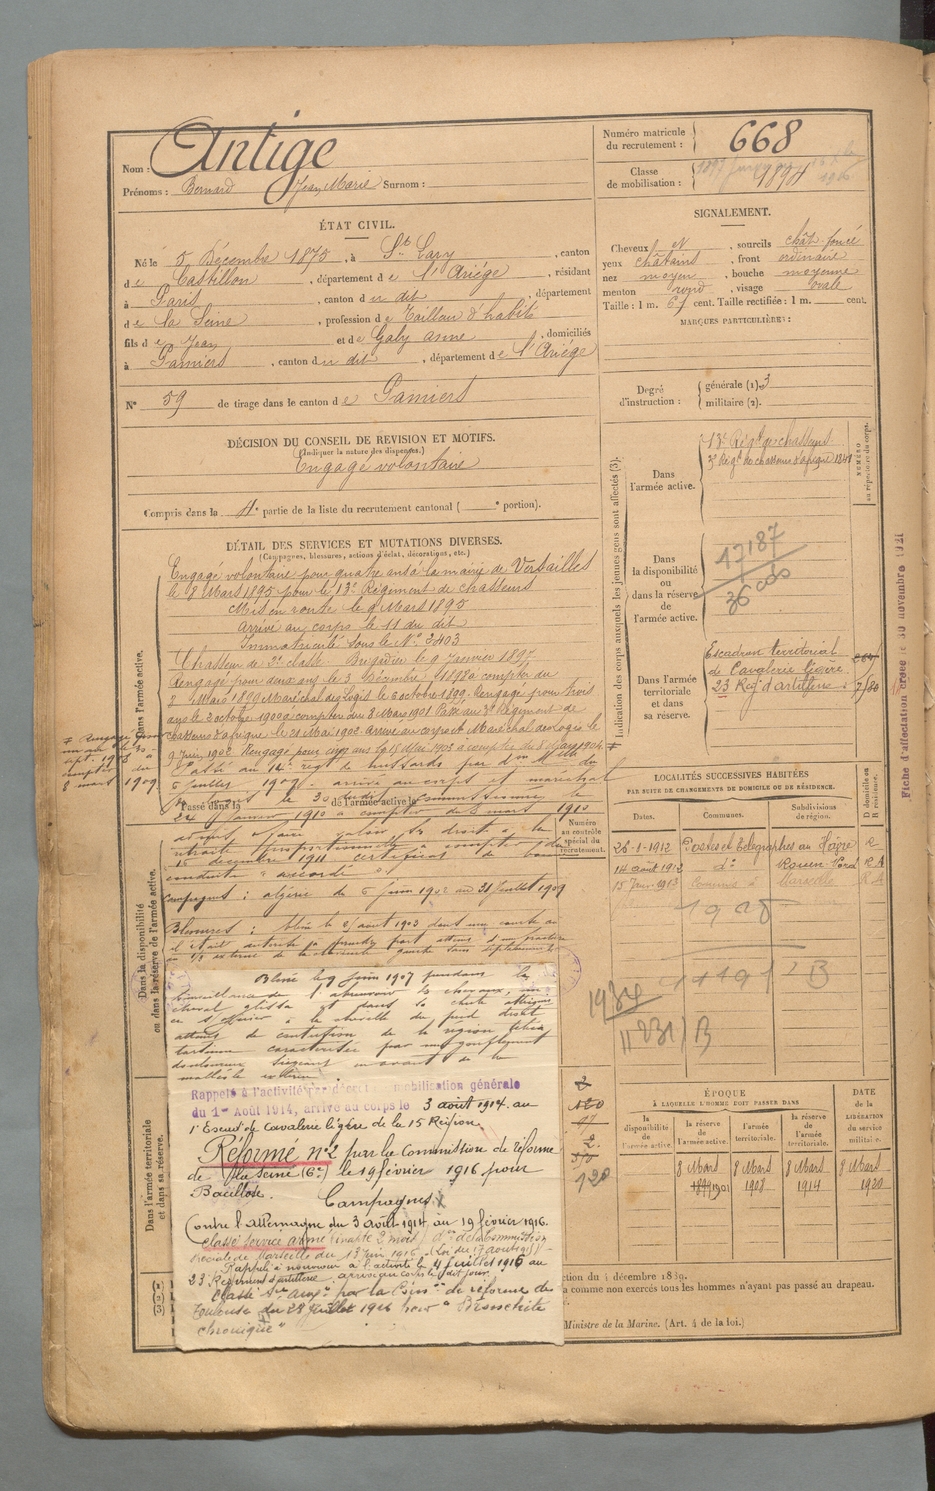 Nom : Antige
Prénoms : Bernard Jean Marie Surnom :
Numéro matricule du recrutement : 668
Classe de mobilisation : 1894
ÉTAT CIVIL.
Né le 5 Décembre 1875, à St Lary, canton
de Castillon, département de l'Ariége, résidant
à Paris, canton du dit, département
de la Seine, profession de Tailleur d'habits
fils de Jean et de Galy Anne, domiciliés
à Pamiers, canton du dit, département de l'Ariége
N° 59 de tirage dans le canton de Pamiers
DÉCISION DU CONSEIL DE REVISION ET MOTIFS.
(Indiquer la nature des dispenses.)
Engagé volontaire
Compris dans la 4e partie de la liste du recrutement cantonal ( e portion).
SIGNALEMENT.
Cheveux et, sourcils chât. foncé
yeux châtains, front ordinaire
nez moyen, bouche moyenne
menton rond, visage ovale
Taille : 1 m. 67 cent. Taille rectifiée : 1 m. cent.
MARQUES PARTICULIÈRES :
Degré d'instruction : générale (1). 3
militaire (2).
Indication des corps auxquels les jeunes gens sont affectés (3).
NUMÉRO au répertoire du corps.
Dans l'armée active.
13e Régt de chasseurs
3e Régt de chasseurs d'afrique 1341
Dans la disponibilité ou dans la réserve de l'armée active.
47187
36
Dans l'armée territoriale et dans sa réserve.
Escadron territorial
de Cavalerie légère
23 Reg d'artillerie
DÉTAIL DES SERVICES ET MUTATIONS DIVERSES.
(Campagnes, blessures, actions d'éclat, décorations, etc.)
Dans l'armée active.
Engagé volontaire pour quatre ans à la mairie de Versailles
le 8 Mars 1895 pour le 13e Régiment de chasseurs
Mis en route le 9 Mars 1895
Arrivé au corps le 11 du dit
Immatriculé sous le N° 2403
Chasseur de 2e classe. Brigadier le 9 Janvier 1897.
Rengagé pour deux ans le 3 Décembre 1898 à compter du
8 Mars 1899. Maréchal des logis le 6 octobre 1899. Rengagé pour trois
ans le 3 octobre 1900 à compter du 8 Mars 1901. Passé au 3e Régiment de
chasseurs d'afrique le 21 Mai 1902. arrivé au corps et Maréchal des logis le
9 Juin 1902. Rengagé pour cinq ans le 18 Mai 1903 à compter du 8 Mars 1904. #
# Rengagé pour
un an le 30
sept. 1908 à
compter du
8 mars 1909
Passé au 14e regt de hussards par
6 juillet 1909. arrivé au corps et maréchal
Passé dans la de l'armée active le
24 janvier 1910 à compter du 8 mars 1910
retraite proportionnelle à compter du
15 décembre 1911 certificat de bonne
conduite accordé
Campagnes : algérie du 6 juin 1902 au 31 juillet 1909
Blessures : blessé le 2 août 1903 dans une
Dans la disponibilité ou dans la réserve de l'armée active.
Numéro au contrôle spécial du recrutement.
Blessé le 9 juin 1907 pendant la
surveillance de l'abreuvoir des chevaux, un
cheval glissa et dans la chute
à la cheville du pied droit
atteint de contusion de la région tibio
tarsienne caractérisée par un gonflement
douloureux siégeant en avant de la
malléole externe.
Rappelé à l'activité par décret de mobilisation générale
du 1er Août 1914, arrivé au corps le 3 août 1914 au
1er Escad de Cavalerie légère de la 15 Région.
Réformé n°2 par la Commission de réforme
de la Seine (6e) le 19 février 1916 pour
Bacillose.
Campagnes
Contre l'allemagne du 3 août 1914 au 19 février 1916.
Classé service armé (inapte 2 mois) don de la Commission
spéciale de Marseille du 13 juin 1916. (Loi du 17 août 1915)
Rappelé à nouveau à l'activité le 4 juillet 1916 au
23 Régiment d'artillerie. arrivé au corps le dit jour.
Classé Sce auxre par la Comon de réforme de
Toulouse du 28 juillet 1916 pour "Bronchite
chronique"
Dans l'armée territoriale et dans sa réserve.
LOCALITÉS SUCCESSIVES HABITÉES
PAR SUITE DE CHANGEMENTS DE DOMICILE OU DE RÉSIDENCE.
Dates. Communes. Subdivisions de région. D domicile ou R résidence.
26-1-1912 Postes et Télégraphes au Hâvre R
14 août 1912 d° Rouen-Nord R A
15 Juin 1913 Marseille R A
11491 2 B
1934
11231/B
120
97
2
120
ÉPOQUE
À LAQUELLE L'HOMME DOIT PASSER DANS
la disponibilité de l'armée active.
la réserve de l'armée active.
l'armée territoriale.
la réserve de l'armée territoriale.
DATE de la LIBÉRATION du service militaire.
8 Mars 1901
8 Mars 1908
8 Mars 1914
8 Mars 1920
ction du 4 décembre 1889.
a comme non exercés tous les hommes n'ayant pas passé au drapeau.
Ministre de la Marine. (Art. 4 de la loi.)
Fiche d'affectation créée le 30 novembre 1921